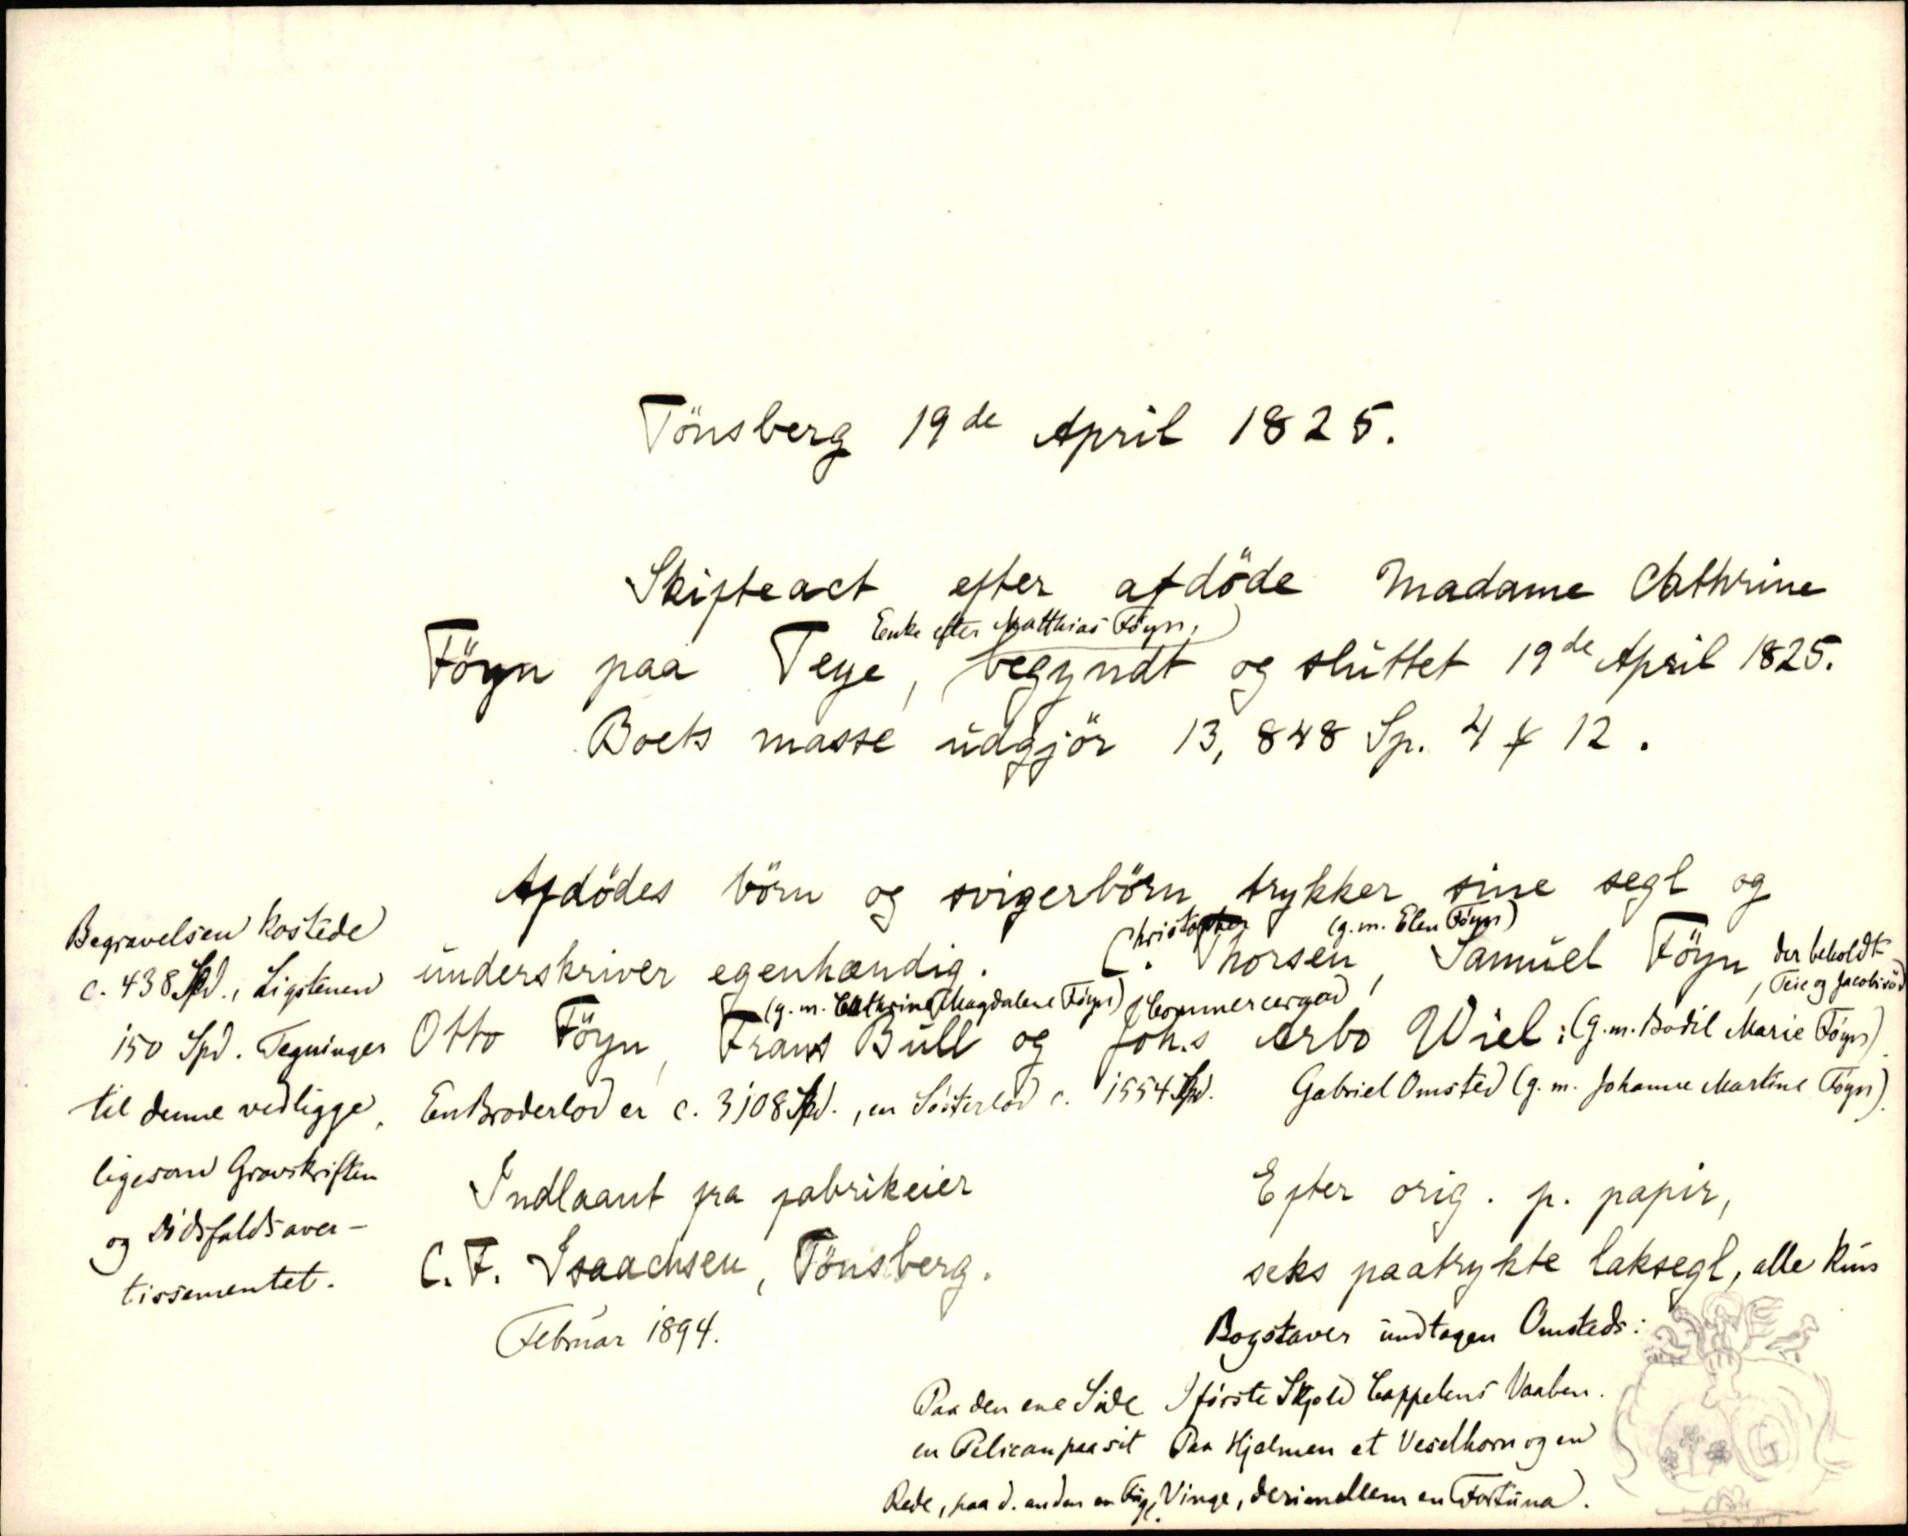 Tönsberg 19de April 1825.
Skifteact efter afdöde Madame Cathrine
Enke efter Matthias Föyn,
Föyn paa Teye, begyndt og sluttet 19de April 1825.
Boets masse udgjör 13,848 Sp. 4 12.
Afdödes börn og svigerbörn trykker sine segl og
Christopher (g.m. Elen Föyn)
underskriver egenhændig. C. Thorsen, Samuel Föyn, der beholdt
Teie og Jacobsröd
(g.m. Cathrine Magdalene Föyn) Commerceraad
Otto Föyn, Frans Bull og Joh.s Arbo Wiel: (g.m. Bodil Marie Föyn)
En Broderlod er c. 3108 Spd., en Sösterlod c. 1554 Spd. Gabriel Omsted (g.m. Johanne Martine Föyn).
Begravelsen kostede
c. 438 Spd., Ligstenen
150 Spd. Tegninger
til denne vedligge,
ligesom Gravskriften
og Dödsfaldsaver-
tissementet.
Indlaant fra fabrikeier
C. F. Isaachsen, Tönsberg.
Februar 1894.
Efter orig. p. papir,
seks paatrykte laksegl, alle kun
Bogstaver undtagen Omsteds:
I förste Skjold Cappelens Vaaben.
Paa Hjelmen et Veselhorn og en
Vinge, derimellem en Fortuna.
Paa den ene Side
en Pelican paa sit
Rede, paa d. anden en Fugl.